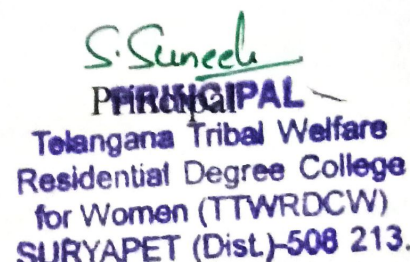 S. Suneel
Principal
PRINCIPAL
Telangana Tribal Welfare
Residential Degree College
for Women (TTWRDCW)
SURYAPET (Dist.)-508 213.